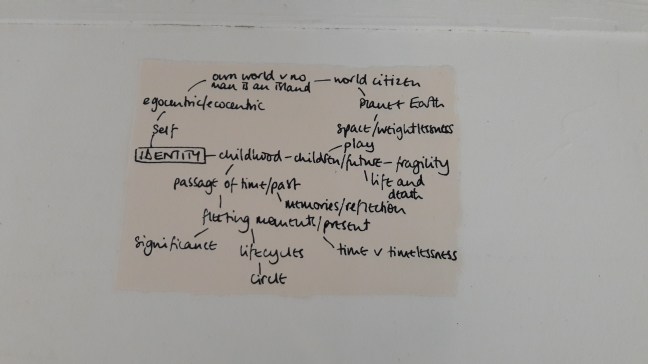 own world v no
man is an island
world citizen
egocentric/ecocentric
Planet Earth
self
space/weightlessness
play
IDENTITY
childhood
children/future
fragility
passage of time/past
life and
death
memories/reflection
fleeting moments/present
significance
lifecycles
time v timelessness
circle